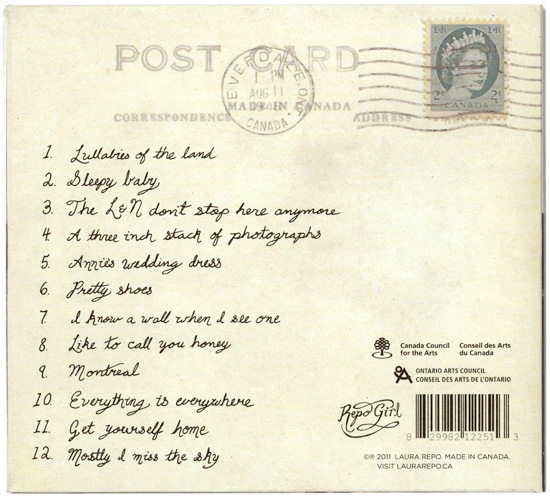 POST CARD
MADE IN CANADA
CORRESPONDENCE ADDRESS
1 PM
AUG 11
CANADA
2c CANADA 2c
1. Lullabies of the land
2. Sleepy baby
3. The L&N don't stop here anymore
4. A three inch stack of photographs
5. Annie's wedding dress
6. Pretty shoes
7. I know a wall when I see one
8. Like to call you honey
9. Montreal
10. Everything is everywhere
11. Get yourself home
12. Mostly I miss the sky
Canada Council for the Arts
Conseil des Arts du Canada
ONTARIO ARTS COUNCIL
CONSEIL DES ARTS DE L'ONTARIO
Repo Girl
8 29982 12251 3
©℗ 2011 LAURA REPO. MADE IN CANADA.
VISIT LAURAREPO.CA